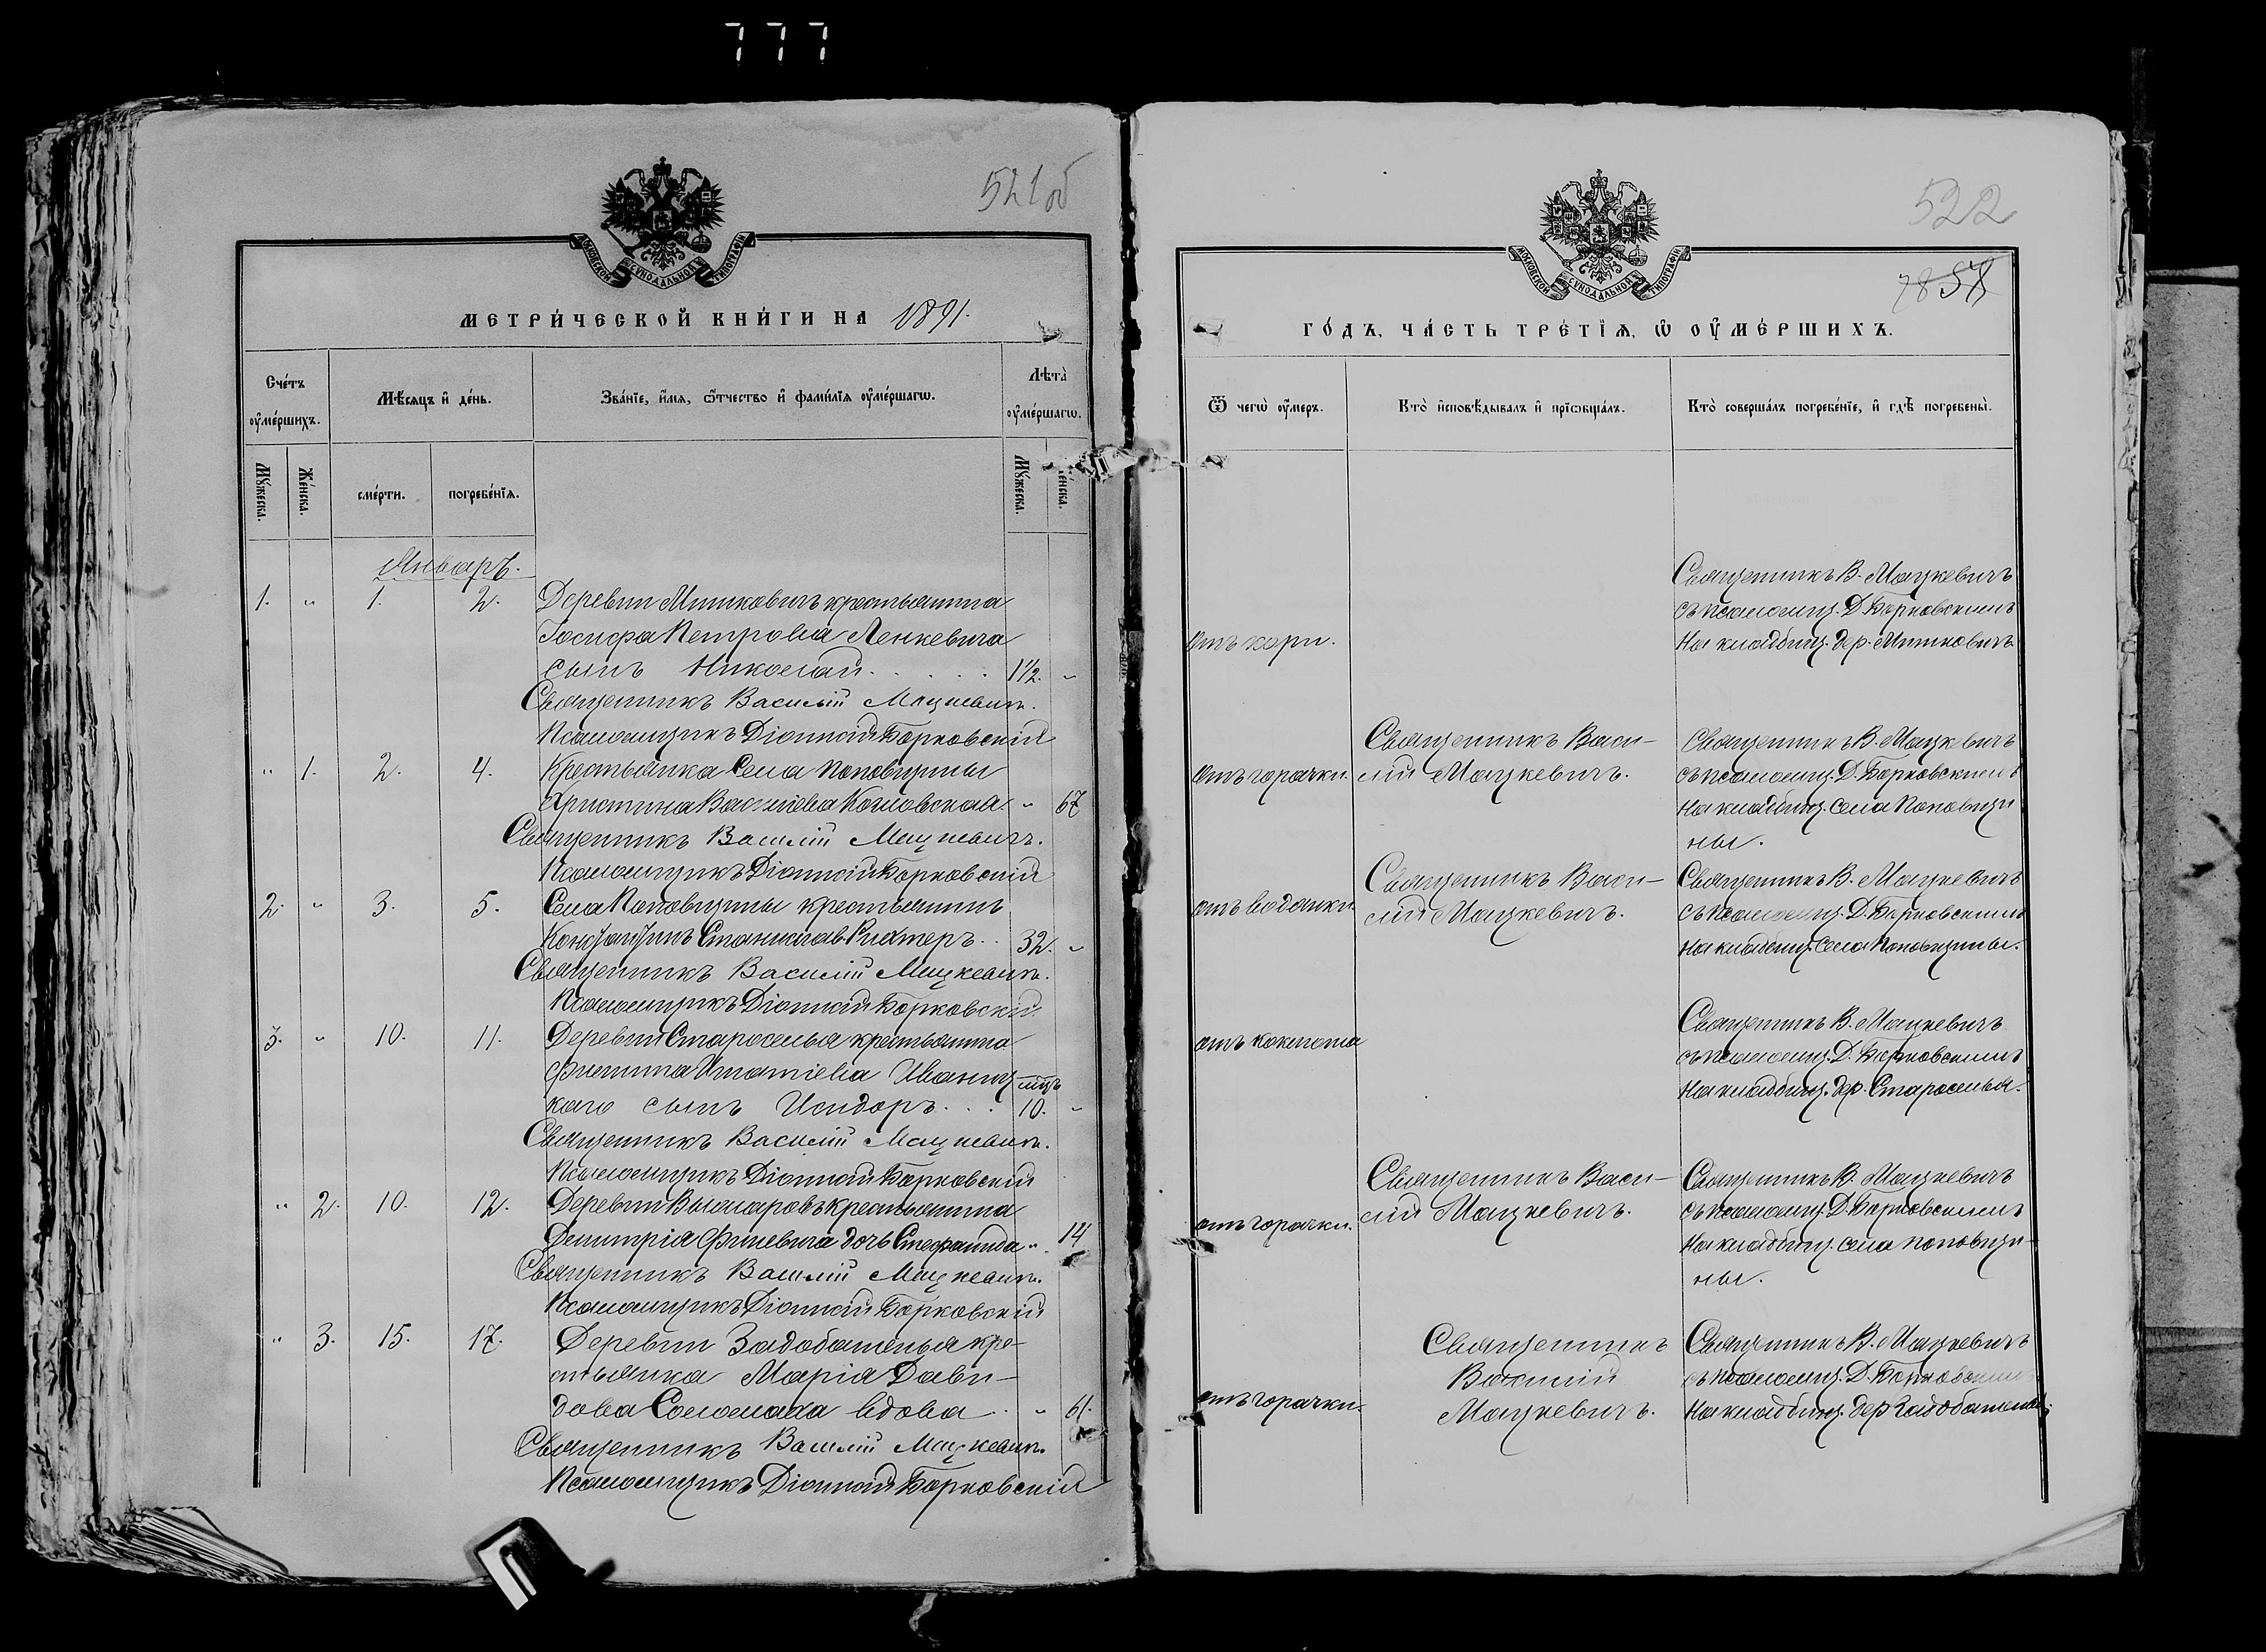 777
521об
МОСКОВСКОЙ СѴНОДАЛЬНОЙ ТИПОГРАФІИ
МЕТРИ́ЧЕСКОЙ КНИ́ГИ НА 1891.
Сче́тъ оу҆ме́ршихъ.
Мѣ́сяцъ и҆ де́нь.
Зва́нїе, и҆́мя, ѻ҆́тчество и҆ фами́лїя оу҆ме́ршагѡ.
Лѣта̀ оу҆ме́ршагѡ.
Мꙋ́жеска.
Же́нска.
сме́рти.
погребе́нїѧ.
Мꙋ́жеска.
Январь.
1. " 1. 2. Деревни Митковичъ крестьянина
Іосифа Петрова Ленкевича
сынъ Николай. . . . . . 1½. "
Священникъ Василій Мацкевичъ.
Псаломщикъ Діонисій Борковскій
" 1. 2. 4. Крестьянка села Поповщины
Христина Васильева Козловская. " 67
Священникъ Василій Мацкевичъ.
Псаломщикъ Діонисій Борковскій
2. " 3. 5. Села Поповщины крестьянинъ
Константинъ Станислав. . . 32. "
Священникъ Василій Мацкевичъ.
Псаломщикъ Діонисій Борковскій
3. " 10. 11. Деревни Староселья крестьянина
Филиппа Игнатіева Иваниц-
каго сынъ Исидоръ. . . мцъ 10. "
Священникъ Василій Мацкевичъ.
Псаломщикъ Діонисій Борковскій
" 2. 10. 12. Деревни крестьянина
Димитрія Финевича дочь Стефанида " 14
Священникъ Василій Мацкевичъ.
Псаломщикъ Діонисій Борковскій
" 3. 15. 17. Деревни Задобаченья кре-
стьянка Марія Дави-
дова Соломаха вдова . " 61.
Священникъ Василій Мацкевичъ.
Псаломщикъ Діонисій Борковскій
522
МОСКОВСКОЙ СѴНОДАЛЬНОЙ ТИПОГРАФІИ
ГО́ДЪ, ЧА́СТЬ ТРЕ́ТЇѦ, Ѡ҆ ОУ҆МЕ́РШИХЪ.
Ѿ чегѡ̀ оу҆́меръ.
Кто̀ и҆сповѣ́дывалъ и҆ прїѡбща́лъ.
Кто̀ соверша́лъ погребе́нїе, и҆ гдѣ̀ погребены̀.
Священникъ В. Мацкевичъ
съ псаломщ. Д. Борковскимъ
отъ кори.
На кладбищ. дер. Митковичъ
Священникъ Васи-
лій Мацкевичъ.
отъ горячки.
Священникъ В. Мацкевичъ
съ псаломщ. Д. Борковскимъ
на кладбищ. села Поповщи
ны.
Священникъ Васи-
лій Мацкевичъ.
отъ водянки.
Священникъ В. Мацкевичъ
съ псаломщ. Д. Борковскимъ
на кладбищ. села Поповщины.
отъ коклюша
Священникъ В. Мацкевичъ
съ псаломщ. Д. Борковскимъ
на кладбищ. дер. Староселья.
Священникъ Васи-
лій Мацкевичъ.
отъ горячки.
Священникъ В. Мацкевичъ
съ псаломщ. Д. Борковскимъ
На кладбищ. села Поповщи-
ны.
Священникъ
Василій
Мацкевичъ.
отъ горячки.
Священникъ В. Мацкевичъ
съ псаломщ. Д. Борковскимъ
На кладбищ. дер. Задобаченья